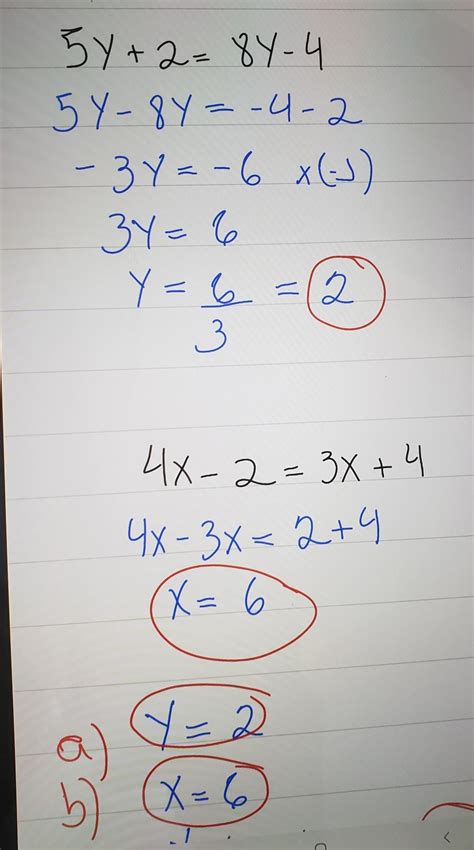 5Y + 2 = 8Y - 4
5Y - 8Y = -4 - 2
- 3Y = -6 x(-1)
3Y = 6
Y = 6/3 = 2
4x - 2 = 3x + 4
4x - 3x = 2 + 4
x = 6
a) Y = 2
b) x = 6